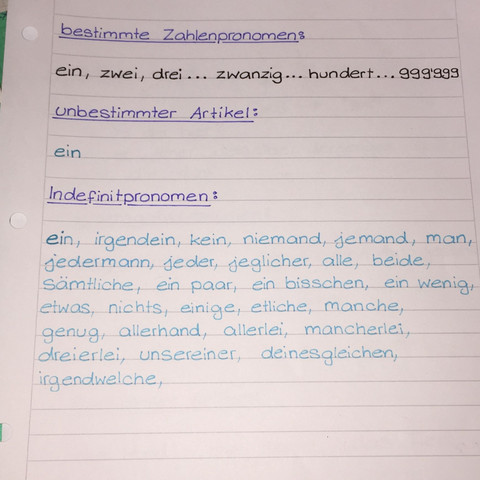 bestimmte Zahlenpronomen:
ein, zwei, drei... zwanzig... hundert... 999'999
unbestimmter Artikel:
ein
Indefinitpronomen:
ein, irgendein, kein, niemand, jemand, man,
jedermann, jeder, jeglicher, alle, beide,
Sämtliche, ein paar, ein bisschen, ein wenig,
etwas, nichts, einige, etliche, manche,
genug, allerhand, allerlei, mancherlei,
dreierlei, unsereiner, deinesgleichen,
irgendwelche,